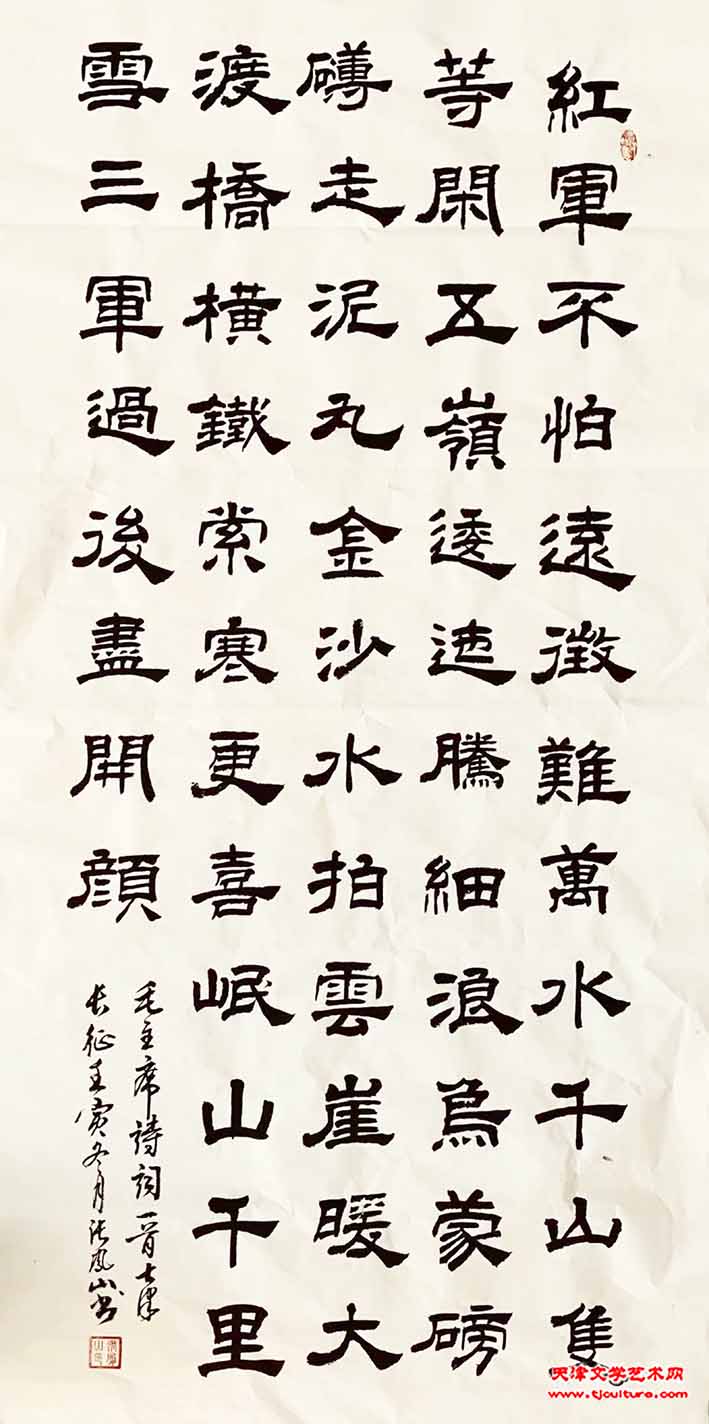 紅軍不怕遠徵難萬水千山隻
等閑五嶺逶迤騰細浪烏蒙磅
礴走泥丸金沙水拍雲崖暖大
渡橋橫鐵索寒更喜岷山千里
雪三軍過後盡開顔
毛主席詩詞一首七律
长征壬寅冬月张凤山书
天津文学艺术网
www.tjculture.com